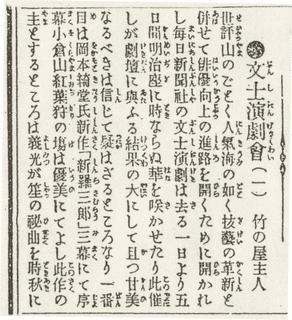 文士演劇會（一） 竹の屋主人
世評山のごとく人氣海の如く技藝の革新と
併せて俳優向上の進路を開くために開かれ
し毎日新聞社の文士演劇は去る一日より五
日間明治座に時ならぬ華を咲かせたり此催
しが劇壇に與ふる結果の大にして且つ甘美
なるべきは信じて疑はざるところなり一番
目は岡本綺堂氏新作「新羅三郎」三幕にて序
幕小倉山紅葉狩の塲は優美にてよし此作の
主とするところは義光が笙の秘曲を時秋に